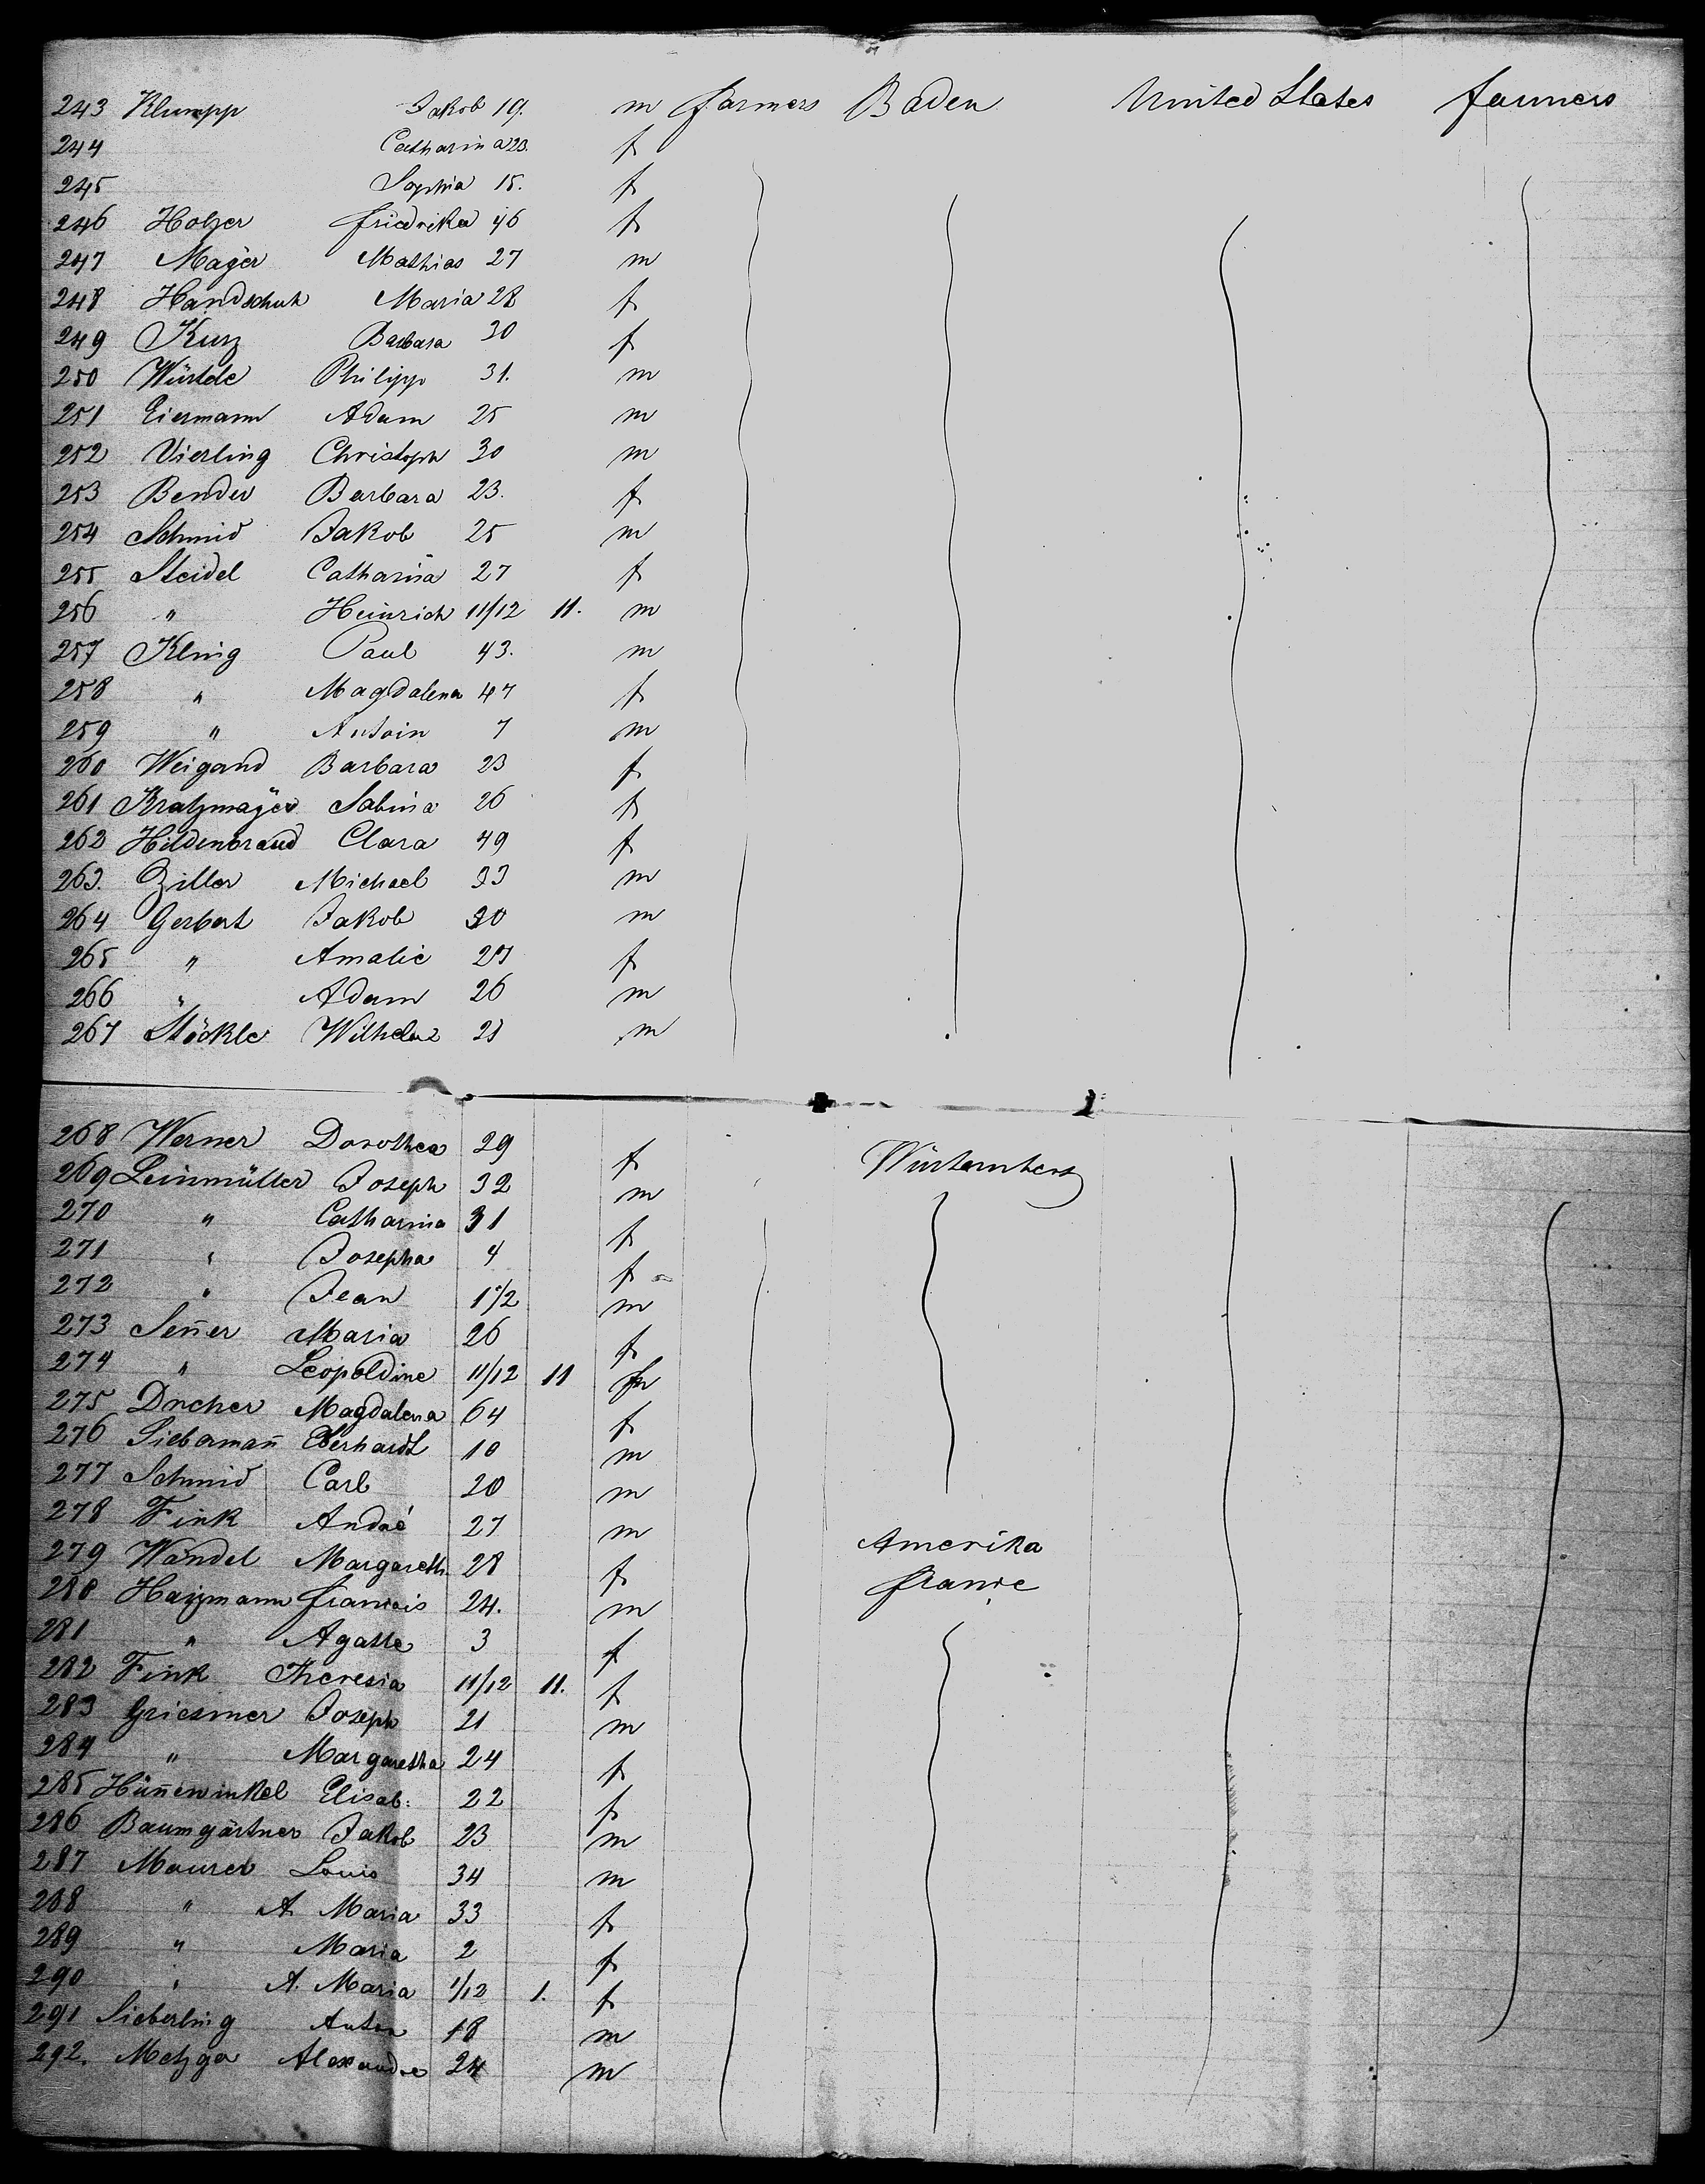 243 Klumpp Jakob 19. m farmers Baden United States farmers
244 Catharina 23. f
245 Sophia 15. f
246 Holzer Friedrika 46 f
247 Mayer Mathias 27 m
248 Handschuh Maria 28 f
249 Kurz Barbara 30 f
250 Würtele Philipp 31. m
251 Eiermann Adam 25 m
252 Vierling Christoph 30 m
253 Bender Barbara 23. f
254 Schmid Jakob 25 m
255 Steidel Catharina 27 f
256 " Heinrich 11/12 11. m
257 Kling Paul 43. m
258 " Magdalena 47 f
259 " Antoin 7 m
260 Weigand Barbara 23 f
261 Kratzmayer Sabina 26 f
262 Hildenbrand Clara 49 f
263. Ziller Michael 33 m
264 Gerbert Jakob 30 m
265 " Amalie 27 f
266 " Adam 26 m
267 Stöckle Wilhelm 21 m
268 Werner Dorothea 29 f Würtemberg
269 Leinmüller Joseph 32 m
270 " Catharina 31 f
271 " Josepha 4 f
272 " Jean 1 1/2 m
273 Sen̄er Maria 26 f
274 " Leopoldine 11/12 11 f
275 Dreher Magdalena 64 f
276 Sieberman̄ Eberhardt 10 m
277 Schmid Carl 20 m
278 Fink André 27 m
279 Wandel Margareth 28 f Amerika
280 Hazmann Francois 24. m France
281 " Agathe 3 f
282 Fink Theresia 11/12 11. f
283 Griesmer Joseph 21 m
284 " Margaretha 24 f
285 Hün̄ewinkel Elisab: 22 f
286 Baumgärtner Jakob 23 m
287 Maurer Louis 34 m
288 " A. Maria 33 f
289 " Maria 2 f
290 " A. Maria 1/12 1. f
291 Sieberling Anton 18 m
292. Metzger Alexandre 24 m